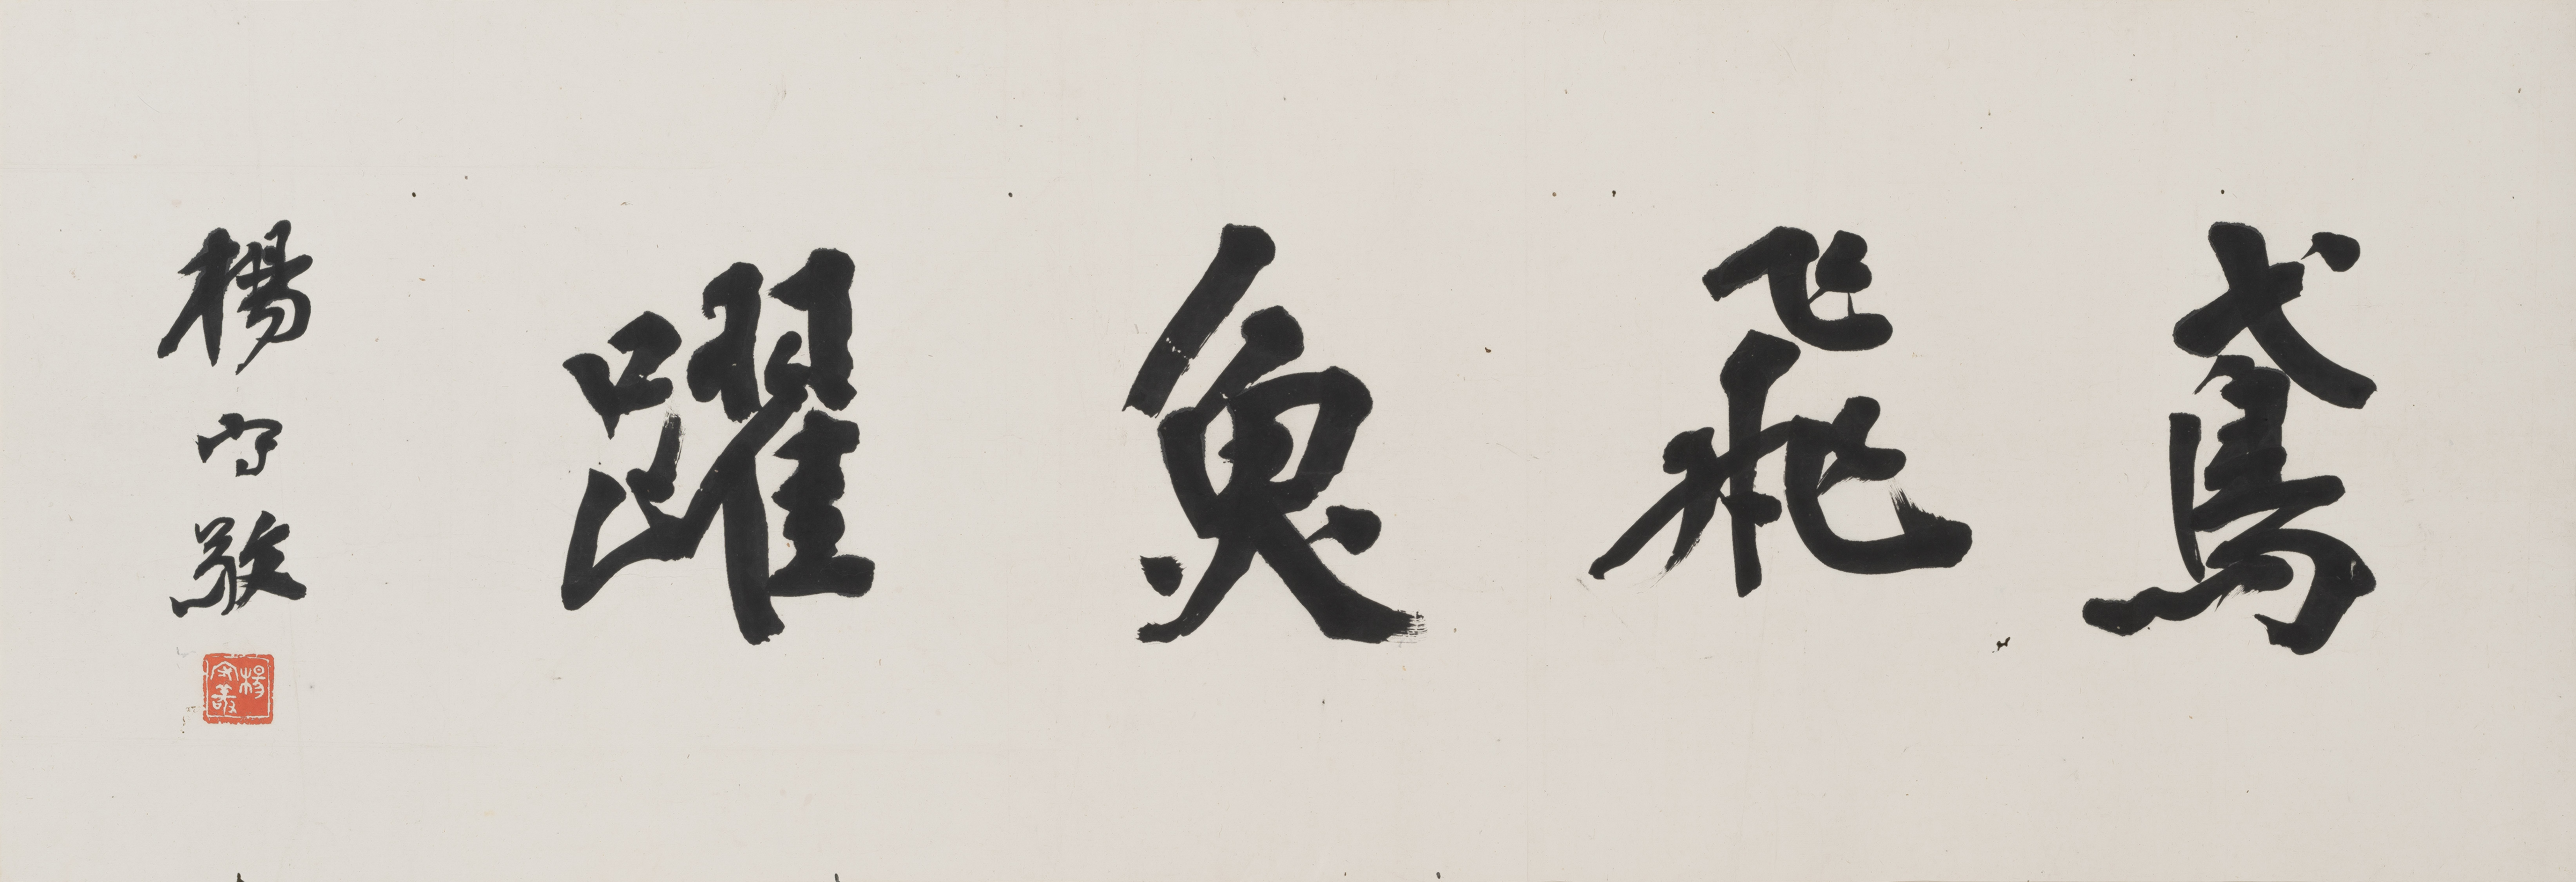 鳶飛魚躍
楊守敬
楊守敬